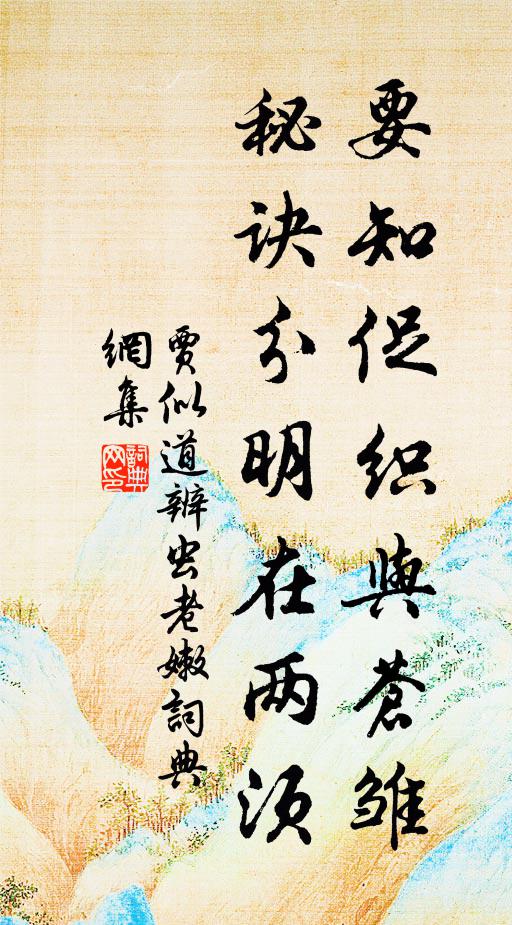 要知促织與蒼雏
秘诀分明在两须
賈似道辨虫老嫩詞典
網集
詞典
网印